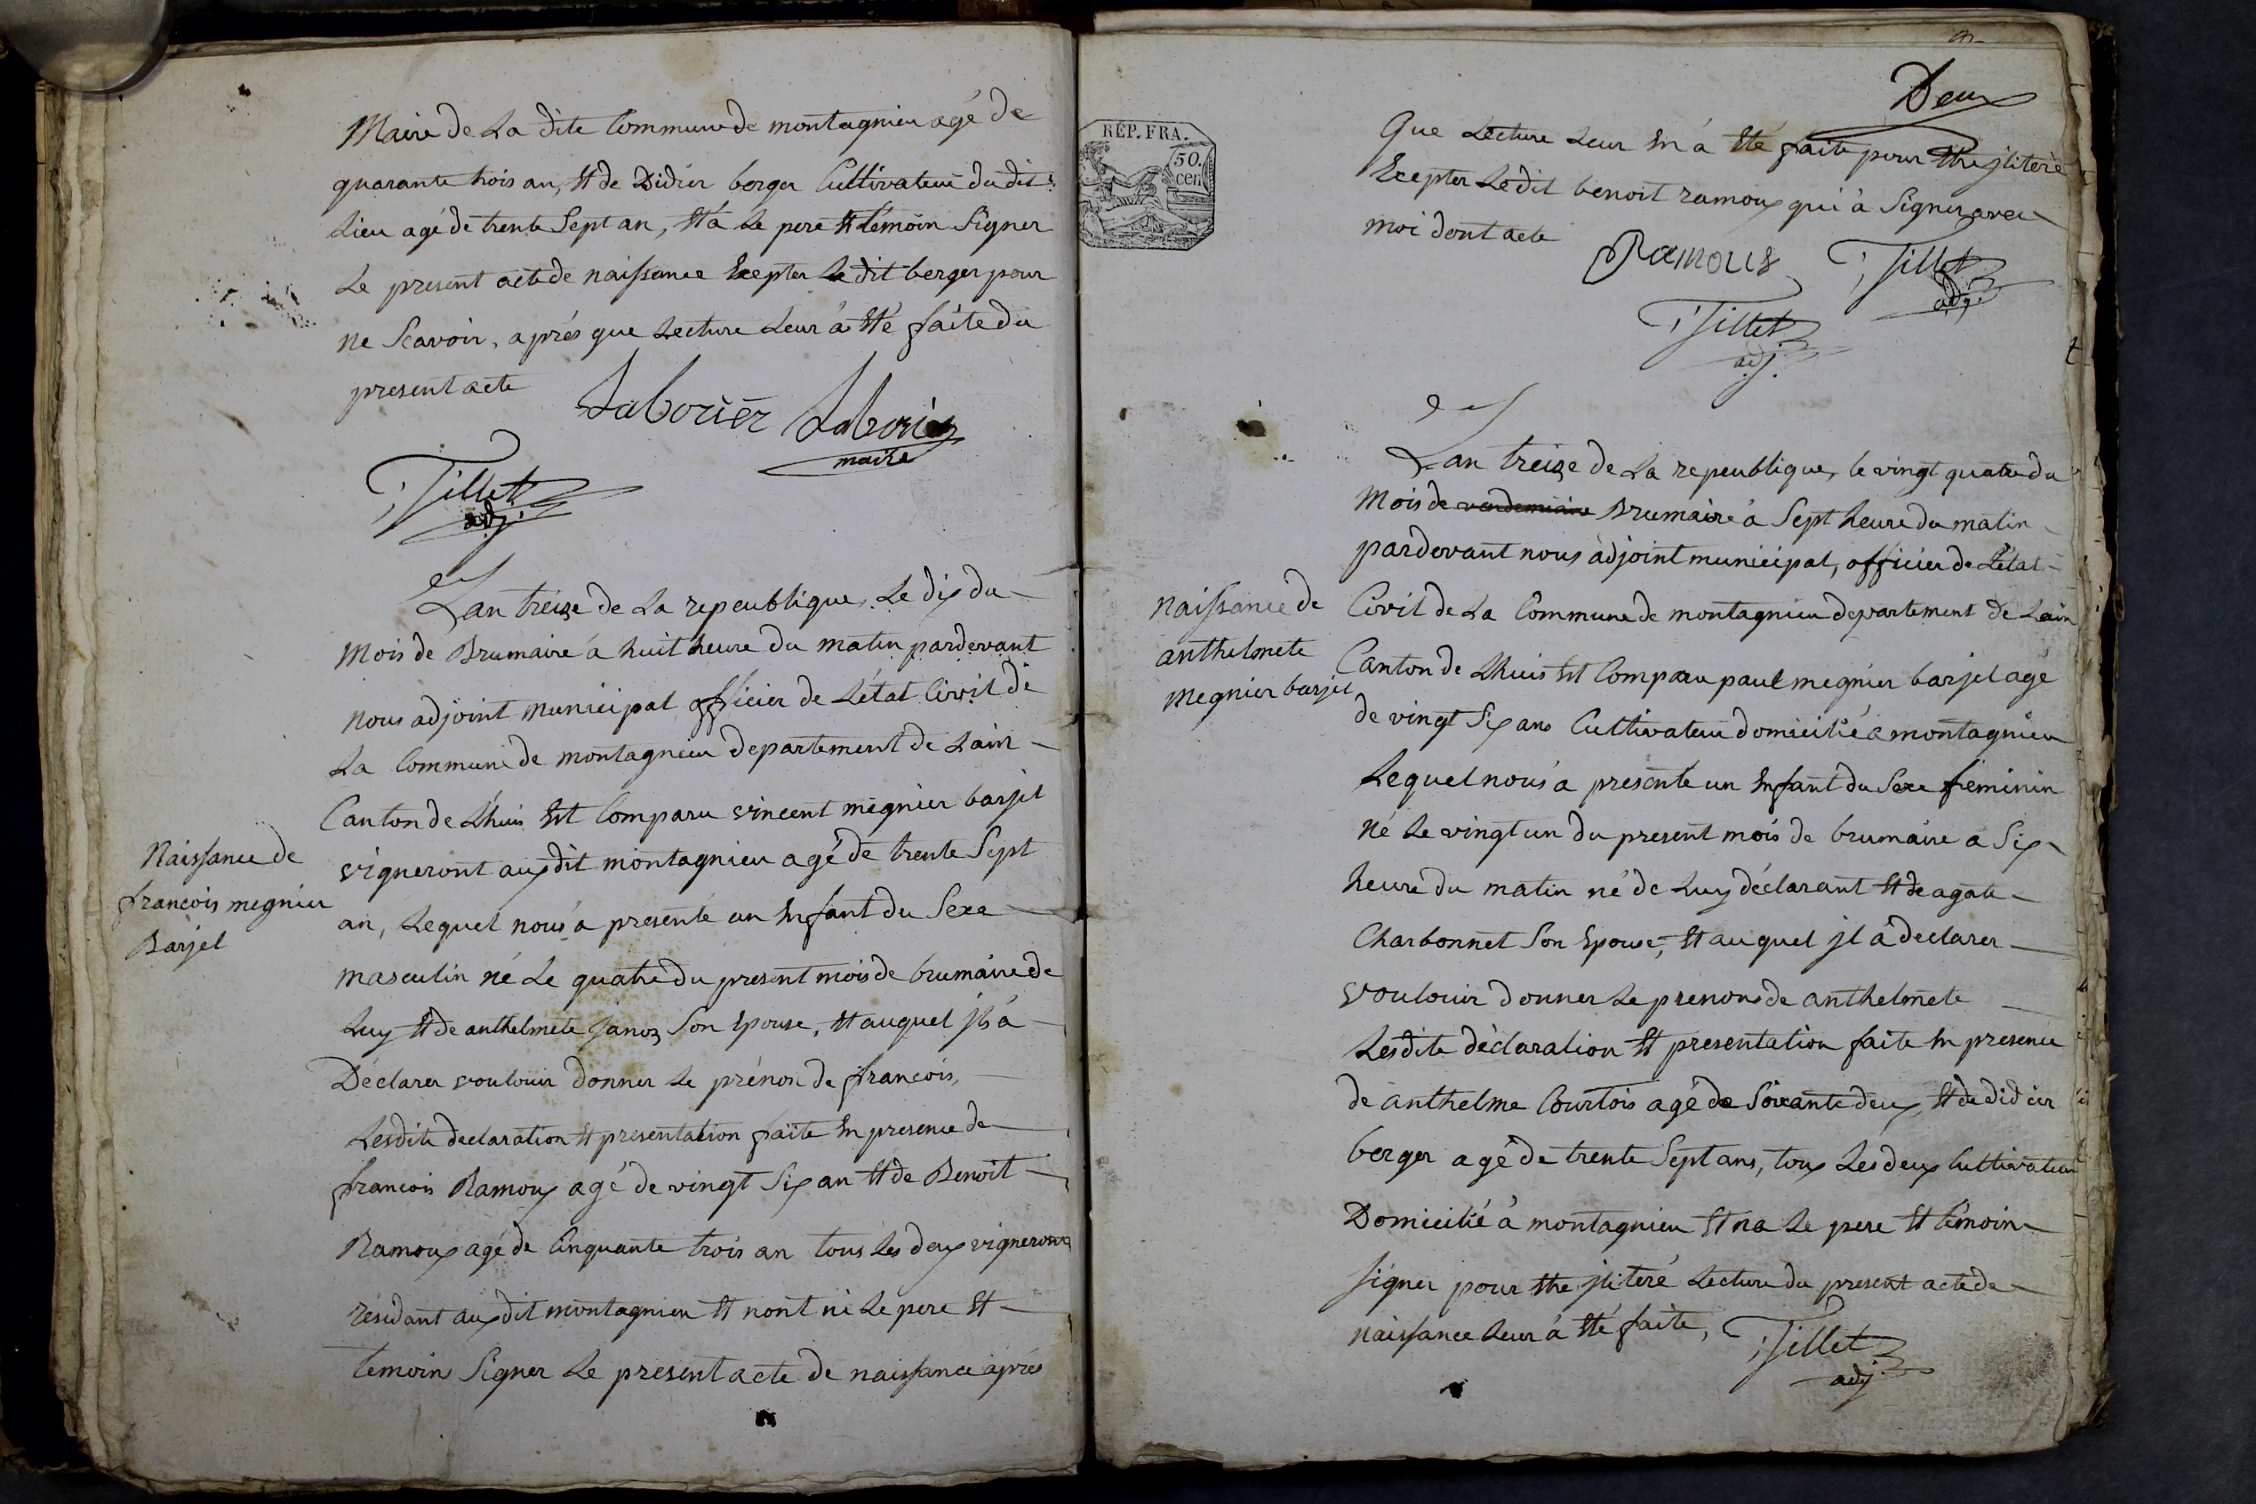 Maire de La dite Commune de montagnieu agé de
quarante trois an, Et de Didier berger Cultivateur du dit
Lieu agé de trente Sept an, Et a Le pere Et témoin Signer
Le present acte de naissance Excepter Le dit berger pour
ne Scavoir, aprés que Lecture Leur á Eté faite du
present acte
Laborier Laborier
maire
Tillet
adj.
Lan treize de La repeublique, Le dix du
Mois de Brumaire á huit heure du matin pardevant
nous adjoint municipal officier de Létat Civil de
La Commune de montagnieu departement de Lain
Canton de Lhuis Est Comparu vincent megnier barjel
vigneront aux dit montagnieu agé de trente Sept
an, Lequel nous a presenté un Enfant du Sexe
masculin né Le quatre du present mois de brumaire de
Luy Et de anthelmete Janoz Son Epouse, Et auquel jl á
Déclarer voulouir donner Le prénon de francois,
Lesdite declaration Et presentation faite En presence de
francois Ramoux agé de vingt Six an Et de Benoit
Ramoux agé de Cinquante trois an tous Les deux vigneront
residant aux dit montagnieu Et nont ni Le pere Et
temoins Signer Le present acte de naissance aprés
Naissance de
francois megnier
Barjel
Deux
RÉP. FRA.
50.
cen
Que Lecture Leur En á Eté faite pour Etre jliteré
Excepter Le dit benoit ramoux qui à Signer avec
moi dont acte
Ramous Tillet
adj.
Tillet
adj.
Lan treize de La repeublique, le vingt quatre du
Mois de vendemiaire Brumaire á Sept heure du matin
pardevant nous adjoint municipal, officier de Létat
Civil de La Commune de montagnieu departement de Lain
Canton de Lhuis Est Comparu paul megnier barjel agé
de vingt Six ans Cultivateur domicilié á montagnieu
Lequel nous á presenté un Enfant du Sexe féminin
né Le vingt un du present mois de brumaire a Six
heure du matin né de Luy déclarant Et de agate
Charbonnet Son Epouse, Et auquel jl á declarer
voulouir donner Le prenons de anthelmete
Lesdite déclaration Et presentation faite En presence
de anthelme Courtois agé de Soixante deux, Et de didier
berger agé de trente Sept ans, tous Les deux Cultivateur
Domicilié á montagnieu Et na Le pere Et témoin
signer pour Etre jliteré Lecture du present acte de
naissance Leur á Eté faite,
Tillet
adj.
Naissance de
anthelmete
megnier barjel